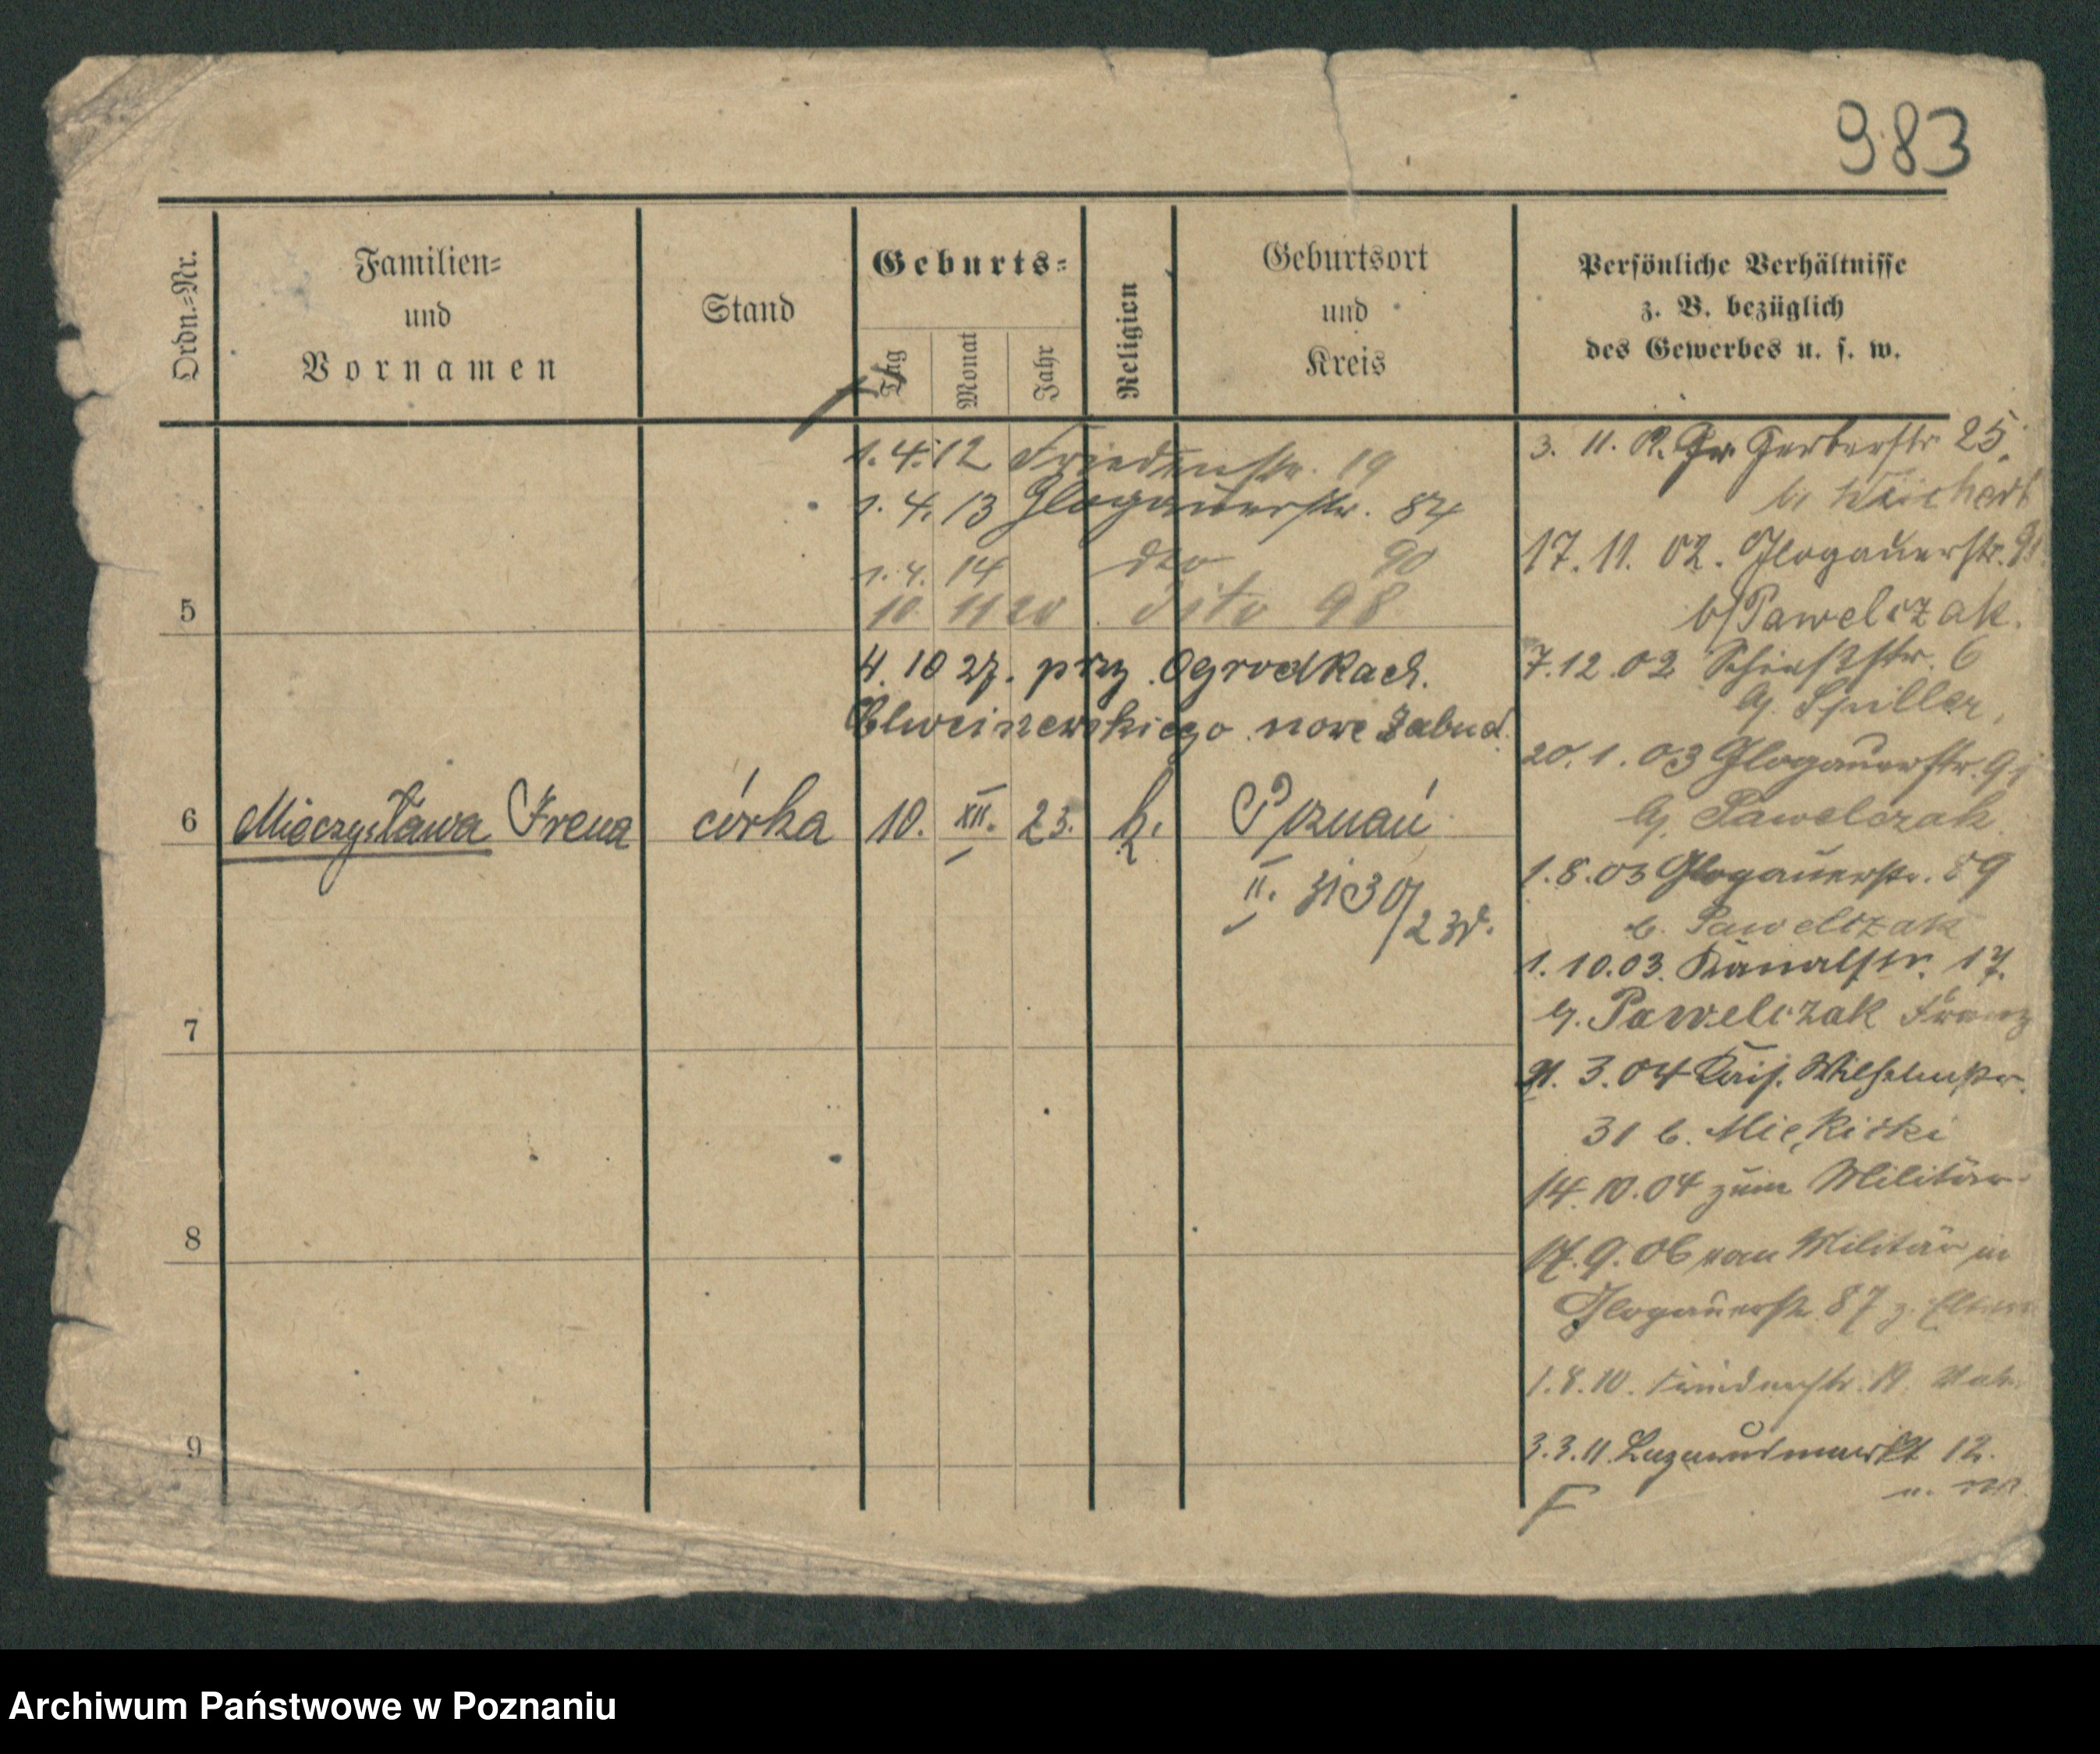 983
Ordn.-Nr.
Familien-
und
Vornamen
Stand
Geburts-
Tag
Monat
Jahr
Religion
Geburtsort
und
Kreis
Persönliche Verhältnisse
z. B. bezüglich
des Gewerbes u. s. w.
1.4.12 Friedenstr. 19
1.4.13 Glogauerstr. 87
1.4.14 dto 90
5 10 11 20 dito 98
4.10 27. przy Ogrodkach.
nowe Zabud.
6 Mieczysława Irena córka 10. XII. 23. k. Poznań
II.
7
8
9
3. 11. 02. Gr. Gerberstr. 25.
b. Weichert
17. 11. 02. Glogauerstr.
b/ Pawelczak.
7.12.02 Schiessstr. 6
b. Spiller,
20. 1. 03 Glogauerstr. 91
b. Pawelczak
1.8.03 Glogauerstr. 89
b. Pawelczak
1. 10.03. Kanalstr. 17.
b. Pawelczak Franz
21. 3.04 Kais. Wilhelmstr.
31 b.
14. 10.04 zum Militär
17. 9. 06 vom Militär in
Glogauerstr. 87 z. Eltern
1.4.10. Friedenstr. 19.
3.3.11 Lazarusmarkt 12.
Archiwum Państwowe w Poznaniu